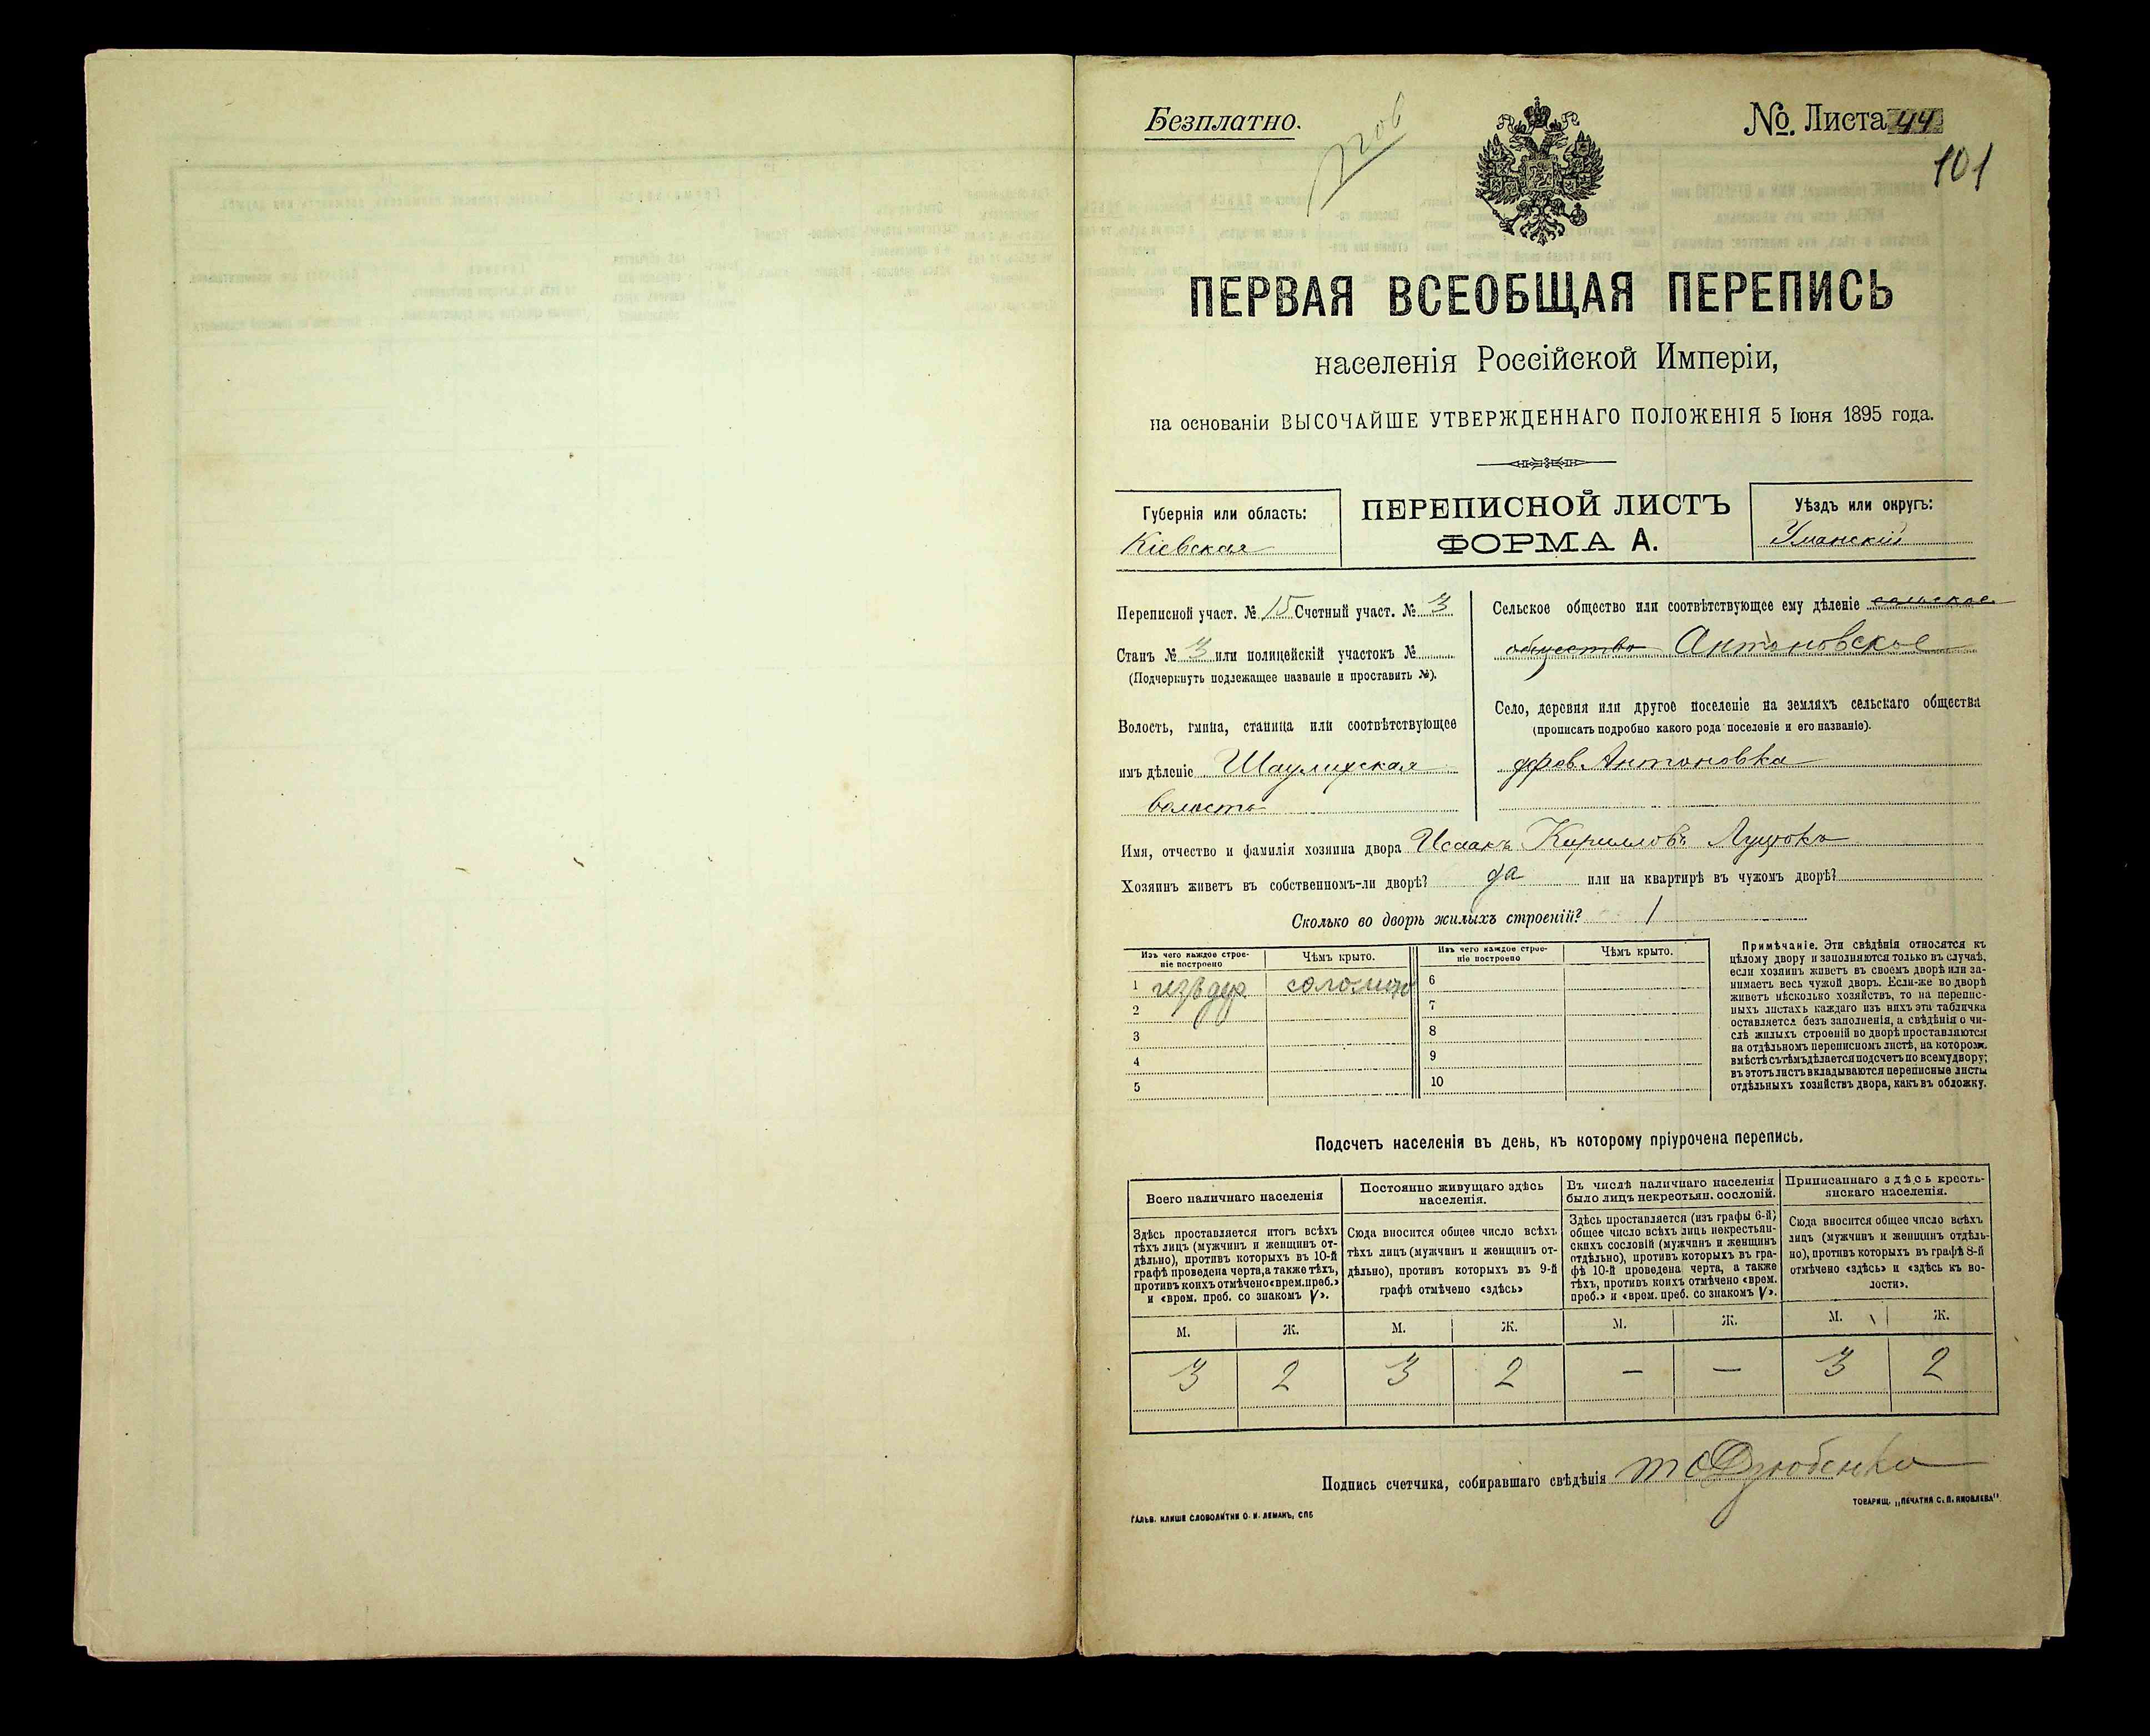 Безплатно.
№. Листа 44
101
ПЕРВАЯ ВСЕОБЩАЯ ПЕРЕПИСЬ
населенія Россійской Имперіи,
на основаніи ВЫСОЧАЙШЕ УТВЕРЖДЕННАГО ПОЛОЖЕНІЯ 5 Іюня 1895 года.
Губернія или область:
Кіевская
ПЕРЕПИСНОЙ ЛИСТЪ
ФОРМА А.
Уѣздъ или округъ:
Уманскій
Переписной участ. № 15 Счетный участ. № 3
Станъ № 3 или полицейскій участокъ №
(Подчеркнуть подлежащее названіе и проставить №).
Волость, гмина, станица или соотвѣтствующее
имъ дѣленіе Шаулихская
волость
Сельское общество или соотвѣтствующее ему дѣленіе сельское
общество Антоновское
Село, деревня или другое поселеніе на земляхъ сельскаго общества
(прописать подробно какого рода поселеніе и его названіе).
Антоновка
Имя, отчество и фамилія хозяина двора Исаакъ Кирилловъ Луцюкъ
Хозяинъ живетъ въ собственномъ-ли дворѣ? да или на квартирѣ въ чужомъ дворѣ?
Сколько во дворѣ жилыхъ строеній? 1
Изъ чего каждое строе-
ніе построено
Чѣмъ крыто.
Изъ чего каждое строе-
ніе построено
Чѣмъ крыто.
1 соломою
2
3
4
5
6
7
8
9
10
Примѣчаніе. Эти свѣдѣнія относятся къ
цѣлому двору и заполняются только въ случаѣ,
если хозяинъ живетъ въ своемъ дворѣ или за-
нимаетъ весь чужой дворъ. Если-же во дворѣ
живетъ нѣсколько хозяйствъ, то на перепис-
ныхъ листахъ каждаго изъ нихъ эта табличка
оставляется безъ заполненія, а свѣдѣнія о чи-
слѣ жилыхъ строеній во дворѣ проставляются
на отдѣльномъ переписномъ листѣ, на которомъ
вмѣстѣ съ тѣмъ дѣлается подсчетъ по всему двору;
въ этотъ листъ вкладываются переписные листы
отдѣльныхъ хозяйствъ двора, какъ въ обложку.
Подсчетъ населенія въ день, къ которому пріурочена перепись.
Всего наличнаго населенія
Здѣсь проставляется итогъ всѣхъ
тѣхъ лицъ (мужчинъ и женщинъ от-
дѣльно), противъ которыхъ въ 10-й
графѣ проведена черта, а также тѣхъ,
противъ коихъ отмѣчено «врем. преб.»
и «врем. преб. со знакомъ V».
Постоянно живущаго здѣсь
населенія.
Сюда вносится общее число всѣхъ
тѣхъ лицъ (мужчинъ и женщинъ от-
дѣльно), противъ которыхъ въ 9-й
графѣ отмѣчено «здѣсь»
Въ числѣ наличнаго населенія
было лицъ некрестьян. сословій.
Здѣсь проставляется (изъ графы 6-й)
общее число всѣхъ лицъ некрестьян-
скихъ сословій (мужчинъ и женщинъ
отдѣльно), противъ которыхъ въ гра-
фѣ 10-й проведена черта, а также
тѣхъ, противъ коихъ отмѣчено «врем.
преб.» и «врем. преб. со знакомъ V».
Приписаннаго здѣсь кресть-
янскаго населенія.
Сюда вносится общее число всѣхъ
лицъ (мужчинъ и женщинъ отдѣль-
но), противъ которыхъ въ графѣ 8-й
отмѣчено «здѣсь» и «здѣсь къ во-
лости».
М. Ж. М. Ж. М. Ж. М. Ж.
3 2 3 2 — — 3 2
Подпись счетчика, собиравшаго свѣдѣнія Дзюбенко
ГАЛЬВ. КЛИШЕ СЛОВОЛИТНИ О. И. ЛЕМАНЪ, СПБ
ТОВАРИЩ. „ПЕЧАТНЯ С. П. ЯКОВЛЕВА".